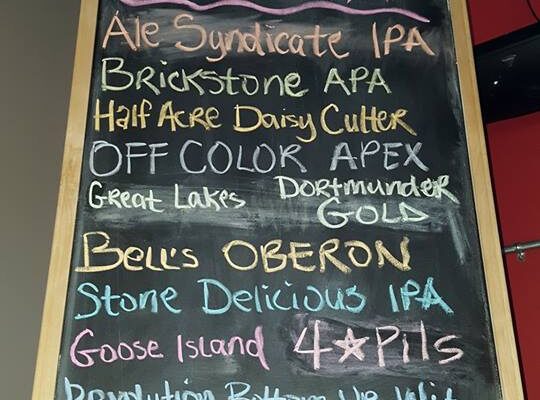 Ale Syndicate IPA
Brickstone APA
Half Acre Daisy Cutter
OFF COLOR APEX
Great Lakes Dortmunder
GOLD
Bell's OBERON
Stone Delicious IPA
Goose Island 4★Pils
Revolution Bottom Up Wit